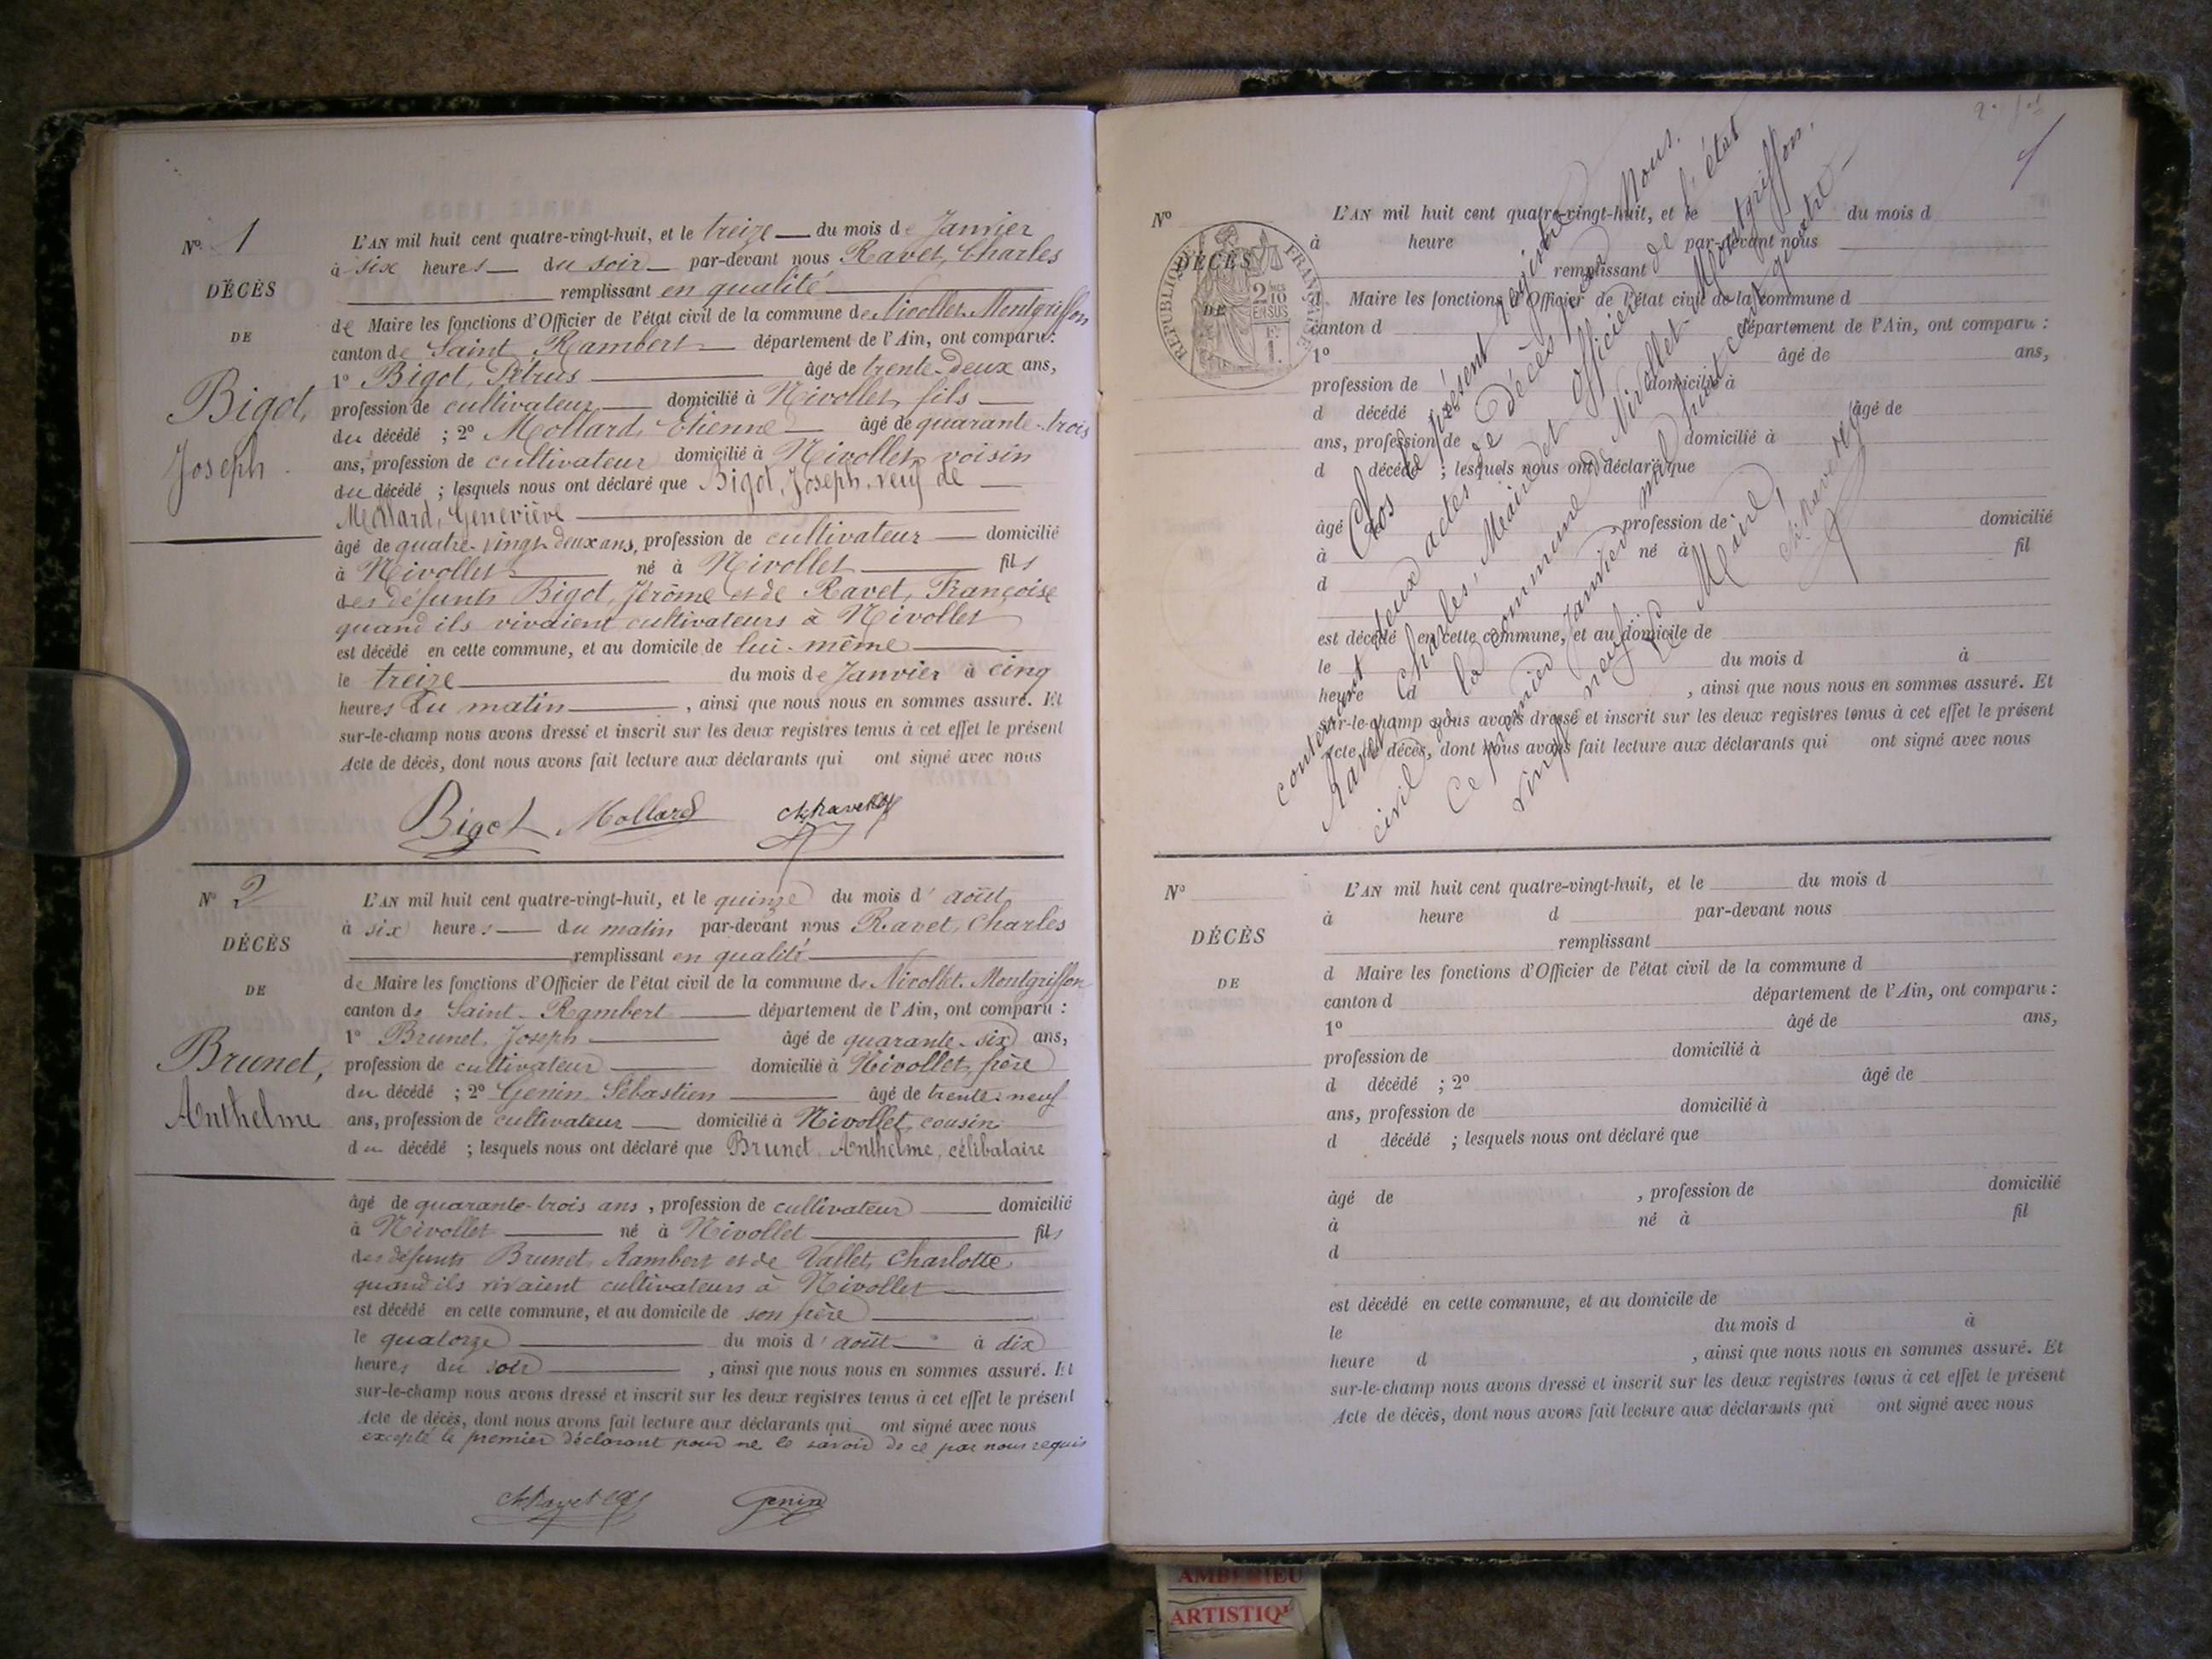 N° 1
DÉCÈS
DE
Bigot,
Joseph
L'AN mil huit cent quatre-vingt-huit, et le treize du mois de Janvier
à six heures du soir par-devant nous Ravet, Charles
remplissant en qualité
de Maire les fonctions d'Officier de l'état civil de la commune de Nivollet-Montgriffon
canton de Saint Rambert département de l'Ain, ont comparu:
1° Bigot, Pétrus âgé de trente-deux ans,
profession de cultivateur domicilié à Nivollet, fils
du décédé ; 2° Mollard, Etienne âgé de quarante-trois
ans, profession de cultivateur domicilié à Nivollet, voisin
du décédé ; lesquels nous ont déclaré que Bigot, Joseph, veuf de
Mollard, Geneviève
âgé de quatre-vingt-deux ans, profession de cultivateur domicilié
à Nivollet né à Nivollet fils
des défunts Bigot, Jérôme et de Ravet, Françoise
quand ils vivaient cultivateurs à Nivollet
est décédé en cette commune, et au domicile de lui-même
le treize du mois de Janvier à cinq
heures du matin , ainsi que nous nous en sommes assuré. Et
sur-le-champ nous avons dressé et inscrit sur les deux registres tenus à cet effet le présent
Acte de décès, dont nous avons fait lecture aux déclarants qui ont signé avec nous
Bigot Mollard Ch. Ravet
N° 2
DÉCÈS
DE
Brunet,
Anthelme
L'AN mil huit cent quatre-vingt-huit, et le quinze du mois d'août
à six heures du matin par-devant nous Ravet, Charles
remplissant en qualité
de Maire les fonctions d'Officier de l'état civil de la commune de Nivollet-Montgriffon
canton de Saint-Rambert département de l'Ain, ont comparu :
1° Brunet, Joseph âgé de quarante-six ans,
profession de cultivateur domicilié à Nivollet, frère
du décédé ; 2° Genin Sébastien âgé de trente-neuf
ans, profession de cultivateur domicilié à Nivollet, cousin
du décédé ; lesquels nous ont déclaré que Brunet, Anthelme, célibataire
âgé de quarante-trois ans, profession de cultivateur domicilié
à Nivollet né à Nivollet fils
des défunts Brunet, Rambert et de Vallet, Charlotte
quand ils vivaient cultivateurs à Nivollet
est décédé en cette commune, et au domicile de son frère
le quatorze du mois d'août à dix
heures du soir , ainsi que nous nous en sommes assuré. Et
sur-le-champ nous avons dressé et inscrit sur les deux registres tenus à cet effet le présent
Acte de décès, dont nous avons fait lecture aux déclarants qui ont signé avec nous
excepté le premier déclarant pour ne le savoir de ce par nous requis
Ch. Ravet Genin
N°
DÉCÈS
DE
RÉPUBLIQUE FRANÇAISE
2/10
EN SUS
L'AN mil huit cent quatre-vingt-huit, et le du mois d
à heure par-devant nous
remplissant
d Maire les fonctions d'Officier de l'état civil de la commune d
canton d département de l'Ain, ont comparu :
1° âgé de ans,
profession de domicilié à
d décédé âgé de
ans, profession de domicilié à
d décédé ; lesquels nous ont déclaré que
âgé de , profession de domicilié
à né à fil
d
est décédé en cette commune, et au domicile de
le du mois d à
heure d , ainsi que nous nous en sommes assuré. Et
sur-le-champ nous avons dressé et inscrit sur les deux registres tenus à cet effet le présent
Acte de décès, dont nous avons fait lecture aux déclarants qui ont signé avec nous
Clos le présent registre
contenant deux actes de Décès par Nous,
Ravet Charles, Maire et Officier de l'état
civil de la commune de Nivollet-Montgriffon.
Ce premier Janvier mil huit cent quatre-
vingt neuf.
Le Maire,
Ch. Ravet
N°
DÉCÈS
DE
L'AN mil huit cent quatre-vingt-huit, et le du mois d
à heure d par-devant nous
remplissant
d Maire les fonctions d'Officier de l'état civil de la commune d
canton d département de l'Ain, ont comparu :
1° âgé de ans,
profession de domicilié à
d décédé ; 2° âgé de
ans, profession de domicilié à
d décédé ; lesquels nous ont déclaré que
âgé de , profession de domicilié
à né à fil
d
est décédé en cette commune, et au domicile de
le du mois d à
heure d , ainsi que nous nous en sommes assuré. Et
sur-le-champ nous avons dressé et inscrit sur les deux registres tenus à cet effet le présent
Acte de décès, dont nous avons fait lecture aux déclarants qui ont signé avec nous
AMBERIEU
ARTISTIQ